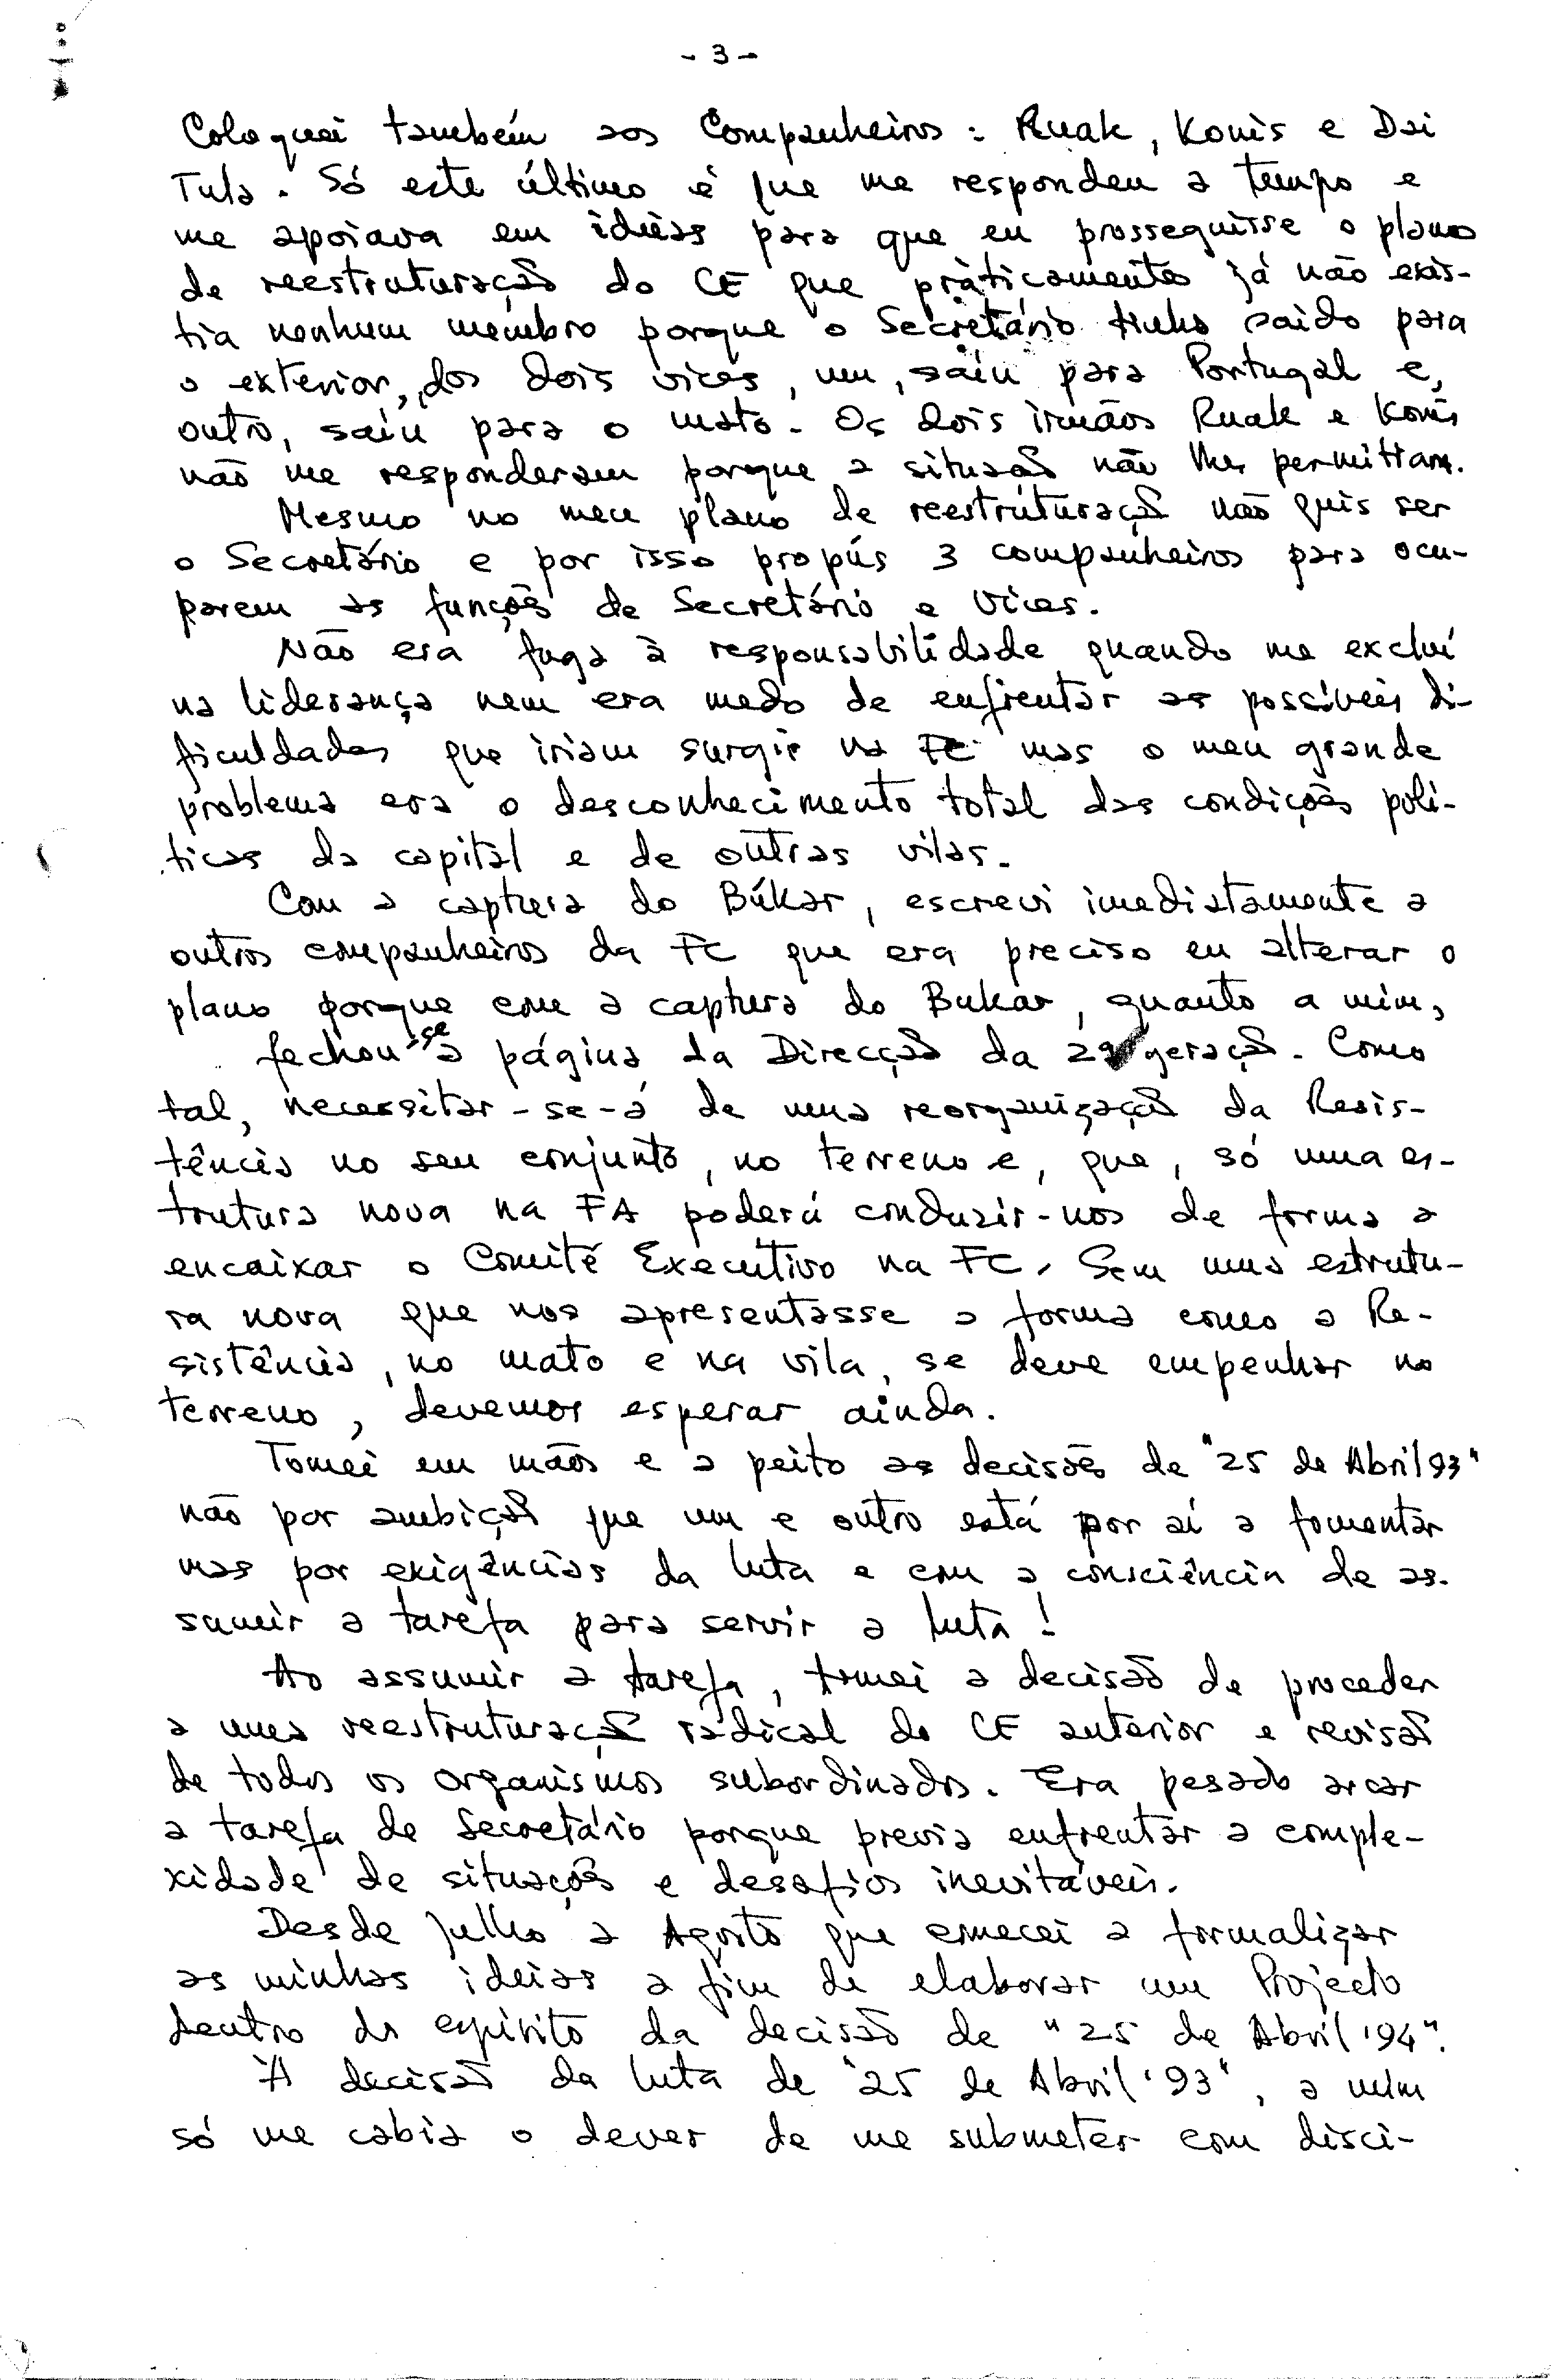 - 3 -
Coloquei também aos Companheiros : Ruak, Konis e Dai
Tula. Só este último é que me respondeu a tempo e
me apoiava em idéias para que eu prosseguisse o plano
de reestruturação do CE que pràticamente já não exis-
tia nenhum membro porque o Secretário tinha saído para
o exterior, dos dois vices, um, saíu para Portugal e,
outro, saíu para o mato. Os dois irmãos Ruak e Konis
não me responderam porque a situação não lhes permittiam.
Mesmo no meu plano de reestruturação não quis ser
o Secretário e por isso propús 3 companheiros para ocu-
parem as funções de Secretário e Vices.
Não era fuga à responsabilidade quando me excluí
na liderança nem era medo de enfrentar as possíveis di-
ficuldades que iriam surgir na FC mas o meu grande
problema era o desconhecimento total das condições polí-
ticas da capital e de outras vilas.
Com a captura do Búkar, escrevi imediatamente a
outros companheiros da FC que era preciso eu alterar o
plano porque com a captura do Bukar, quanto a mim,
fechou-se a página da Direcção da 2ª geração. Como
tal, necessitar-se-á de uma reorganização da Resis-
tência no seu conjunto, no terreno e, que, só uma es-
trutura nova na FA poderá conduzir-nos de forma a
encaixar o Comité Executivo na FC. Sem uma estrutu-
ra nova que nos apresentasse a forma como a Re-
sistência, no mato e na vila, se deve empenhar no
terreno, devemos esperar ainda.
Tomei em mãos e a peito as decisões de "25 de Abril 93"
não por ambição que um e outro está por aí a fomentar
mas por exigências da luta e com a consciência de as-
sumir a tarefa para servir a luta!
Ao assumir a tarefa, tomei a decisão de proceder
a uma reestruturação radical do CE anterior e revisão
de todos os organismos subordinados. Era pesado arcar
a tarefa de Secretário porque previa enfrentar a comple-
xidade de situações e desafios inevitáveis.
Desde Julho a Agosto que comecei a formalizar
as minhas ideias a fim de elaborar um Projecto
dentro do espírito da decisão de "25 de Abril '94".
À decisão da luta de "25 de Abril '93", a mim
só me cabia o dever de me submeter com disci-